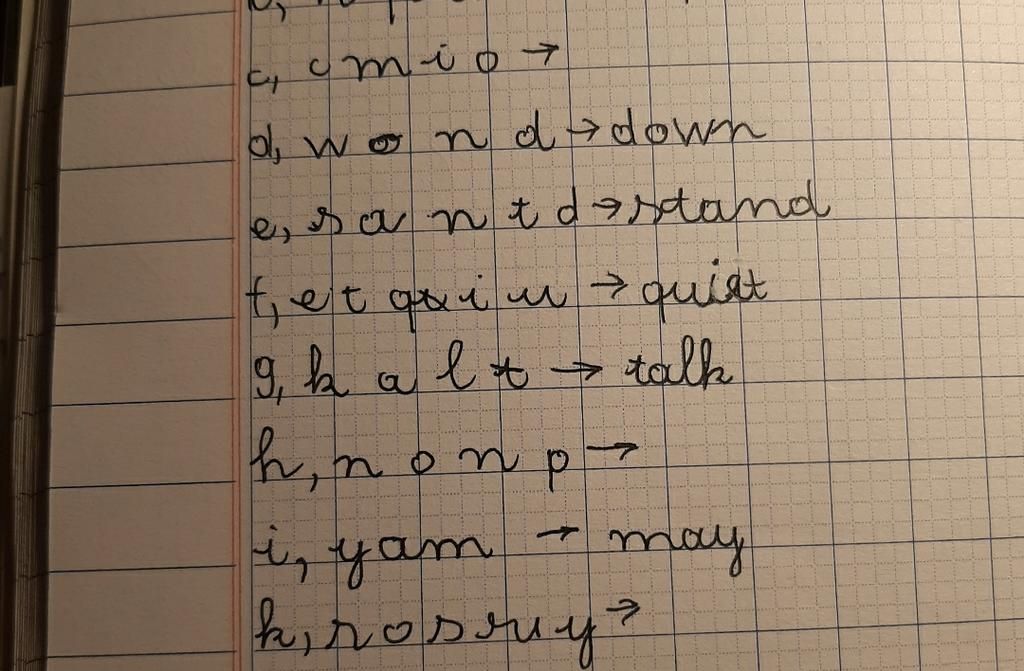 c, c m i o →
d, w o n d → down
e, s a n t d → stand
f, e t q u i u → quiet
g, k a l t → talk
h, n o n p →
i, yam → may
k, n o s r u y →